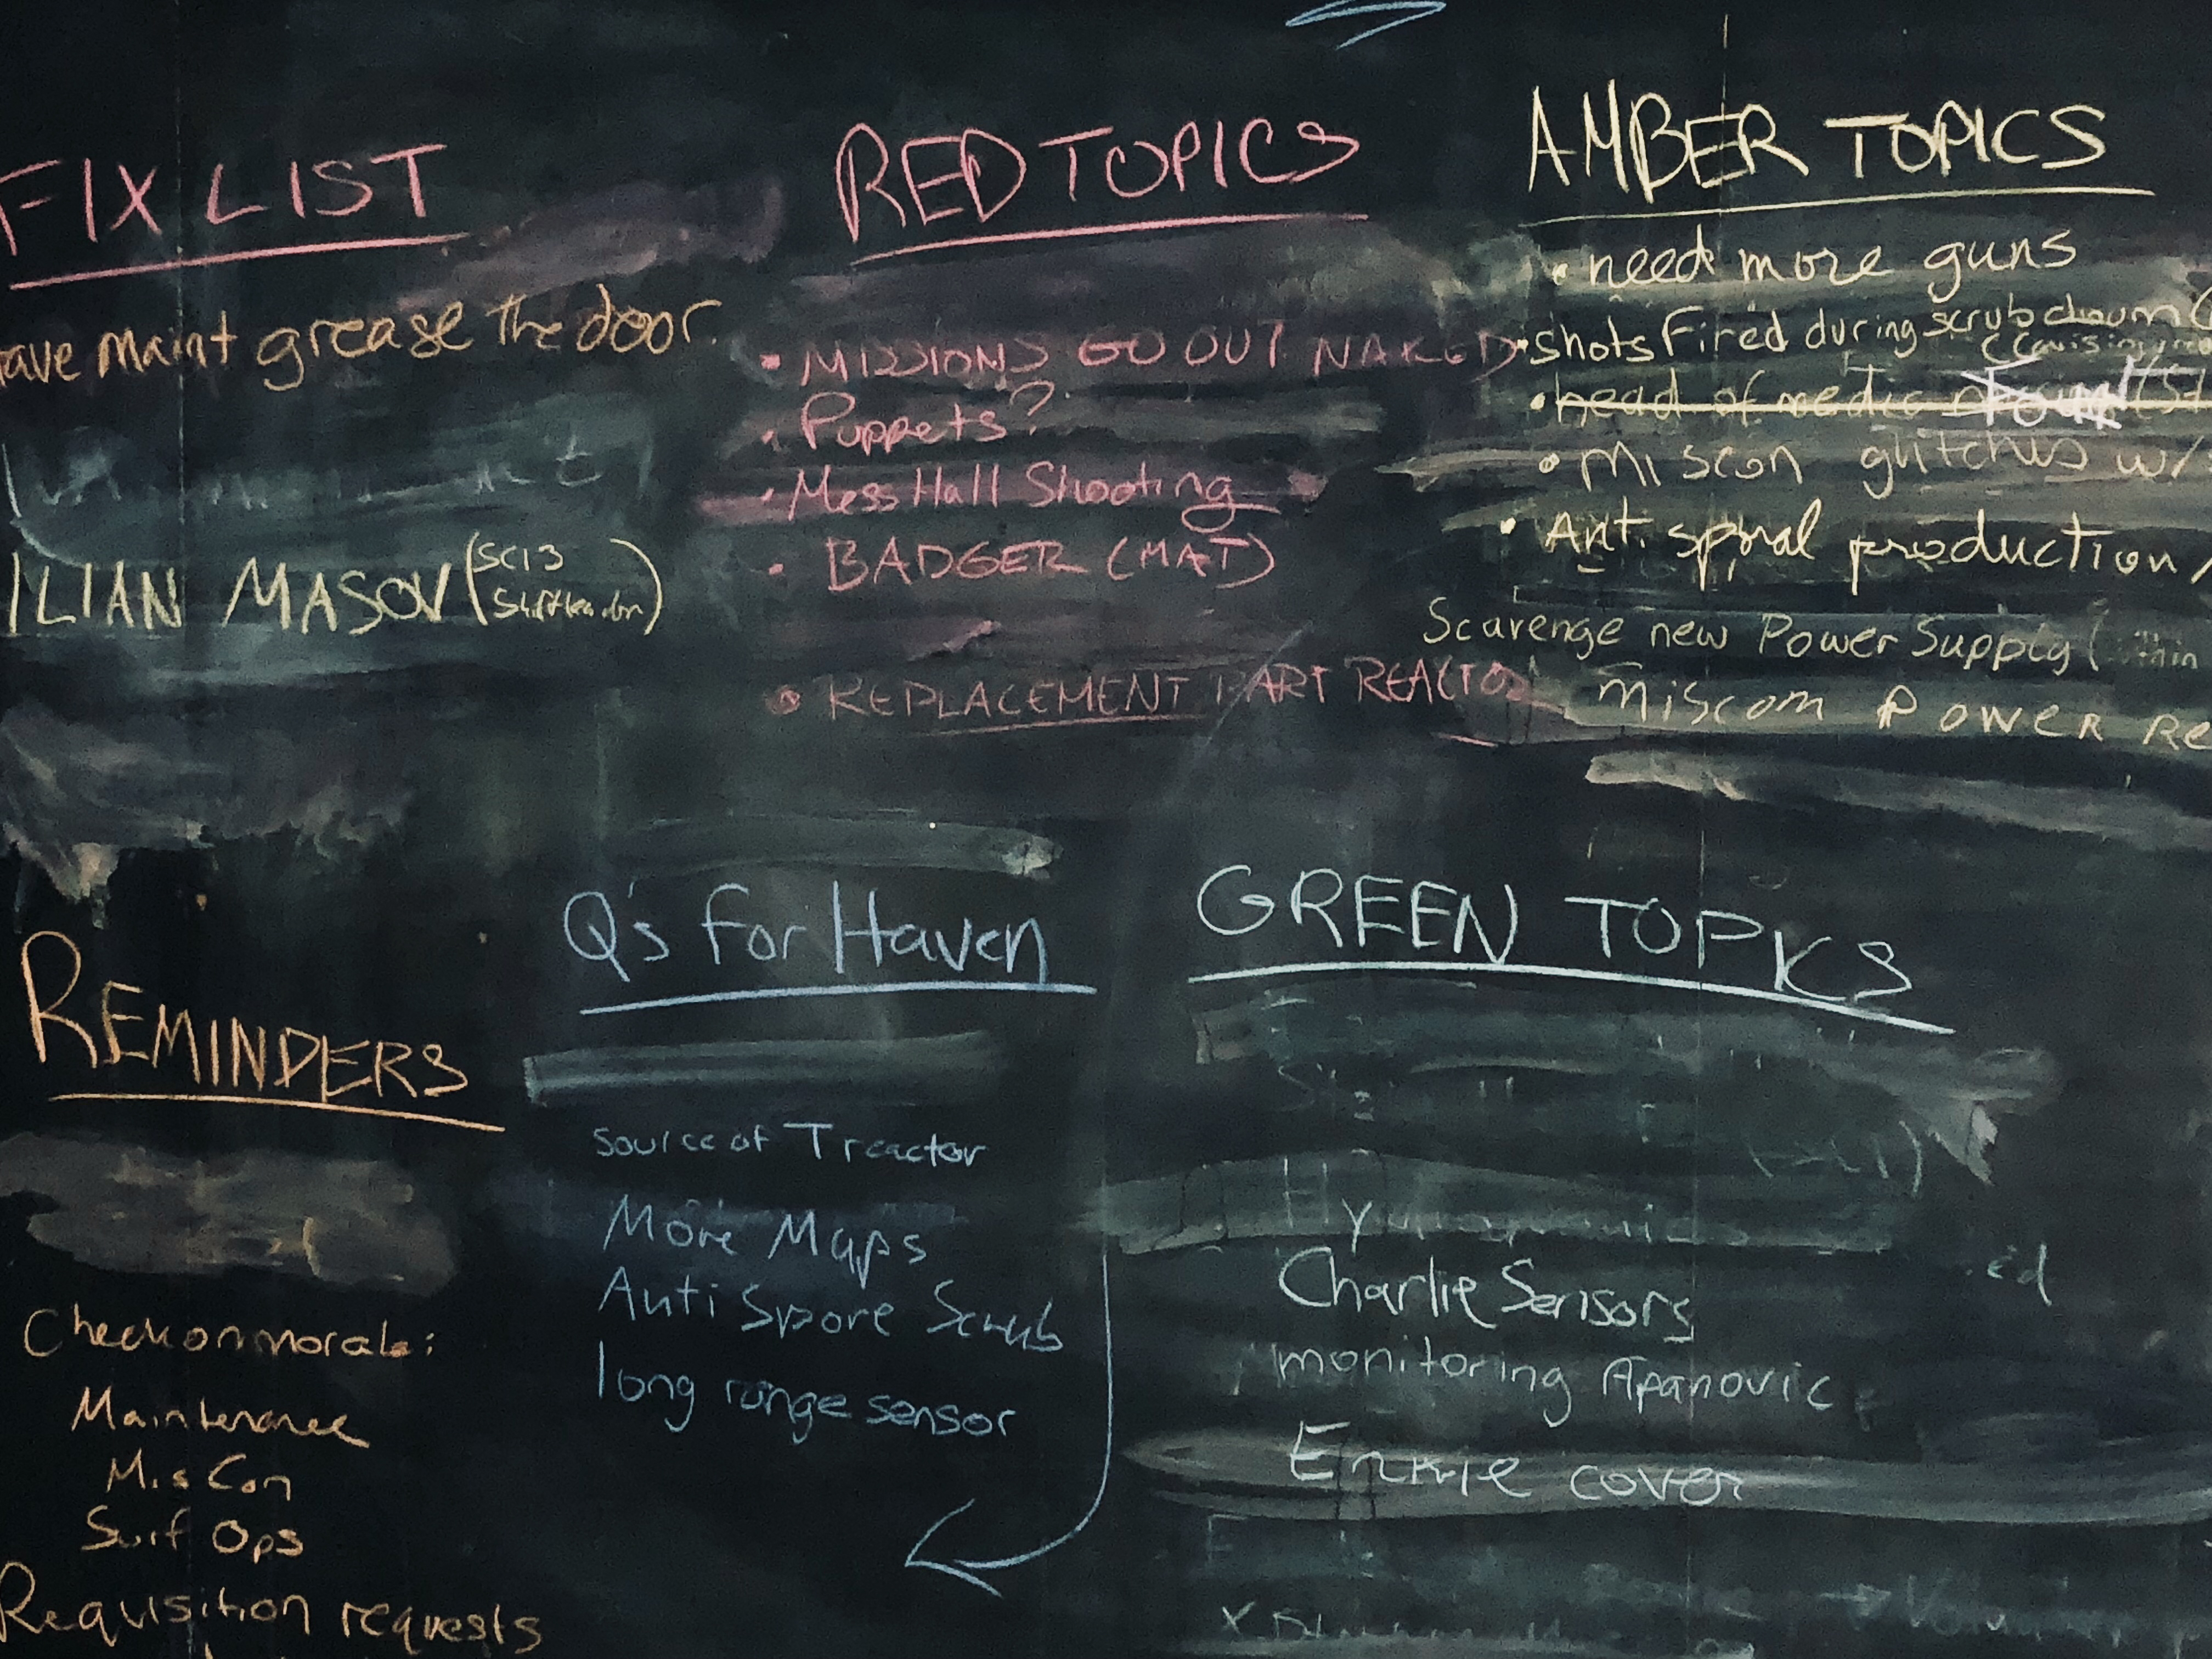 FIX LIST
maint grease the door.
ILIAN MASOV (SCI 3
RED TOPICS
• MISSIONS GO OUT NAKED
• Puppets?
• Mess Hall Shooting
• BADGER (MAT)
• REPLACEMENT PART REACTOR
AMBER TOPICS
• need more guns
• shots Fired during scrub
• head of medic
• Miscon glitches w/
• Anti spiral production
Scavenge new Power Supply
Miscom Power
REMINDERS
Check on morale:
Maintenance
MisCon
Surf Ops
Requisition requests
Q's For Haven
source of T reactor
More Maps
Anti Spore Scrub
long range sensor
GREEN TOPICS
Charlie Sensors
monitoring Apanovic
Ernie cover